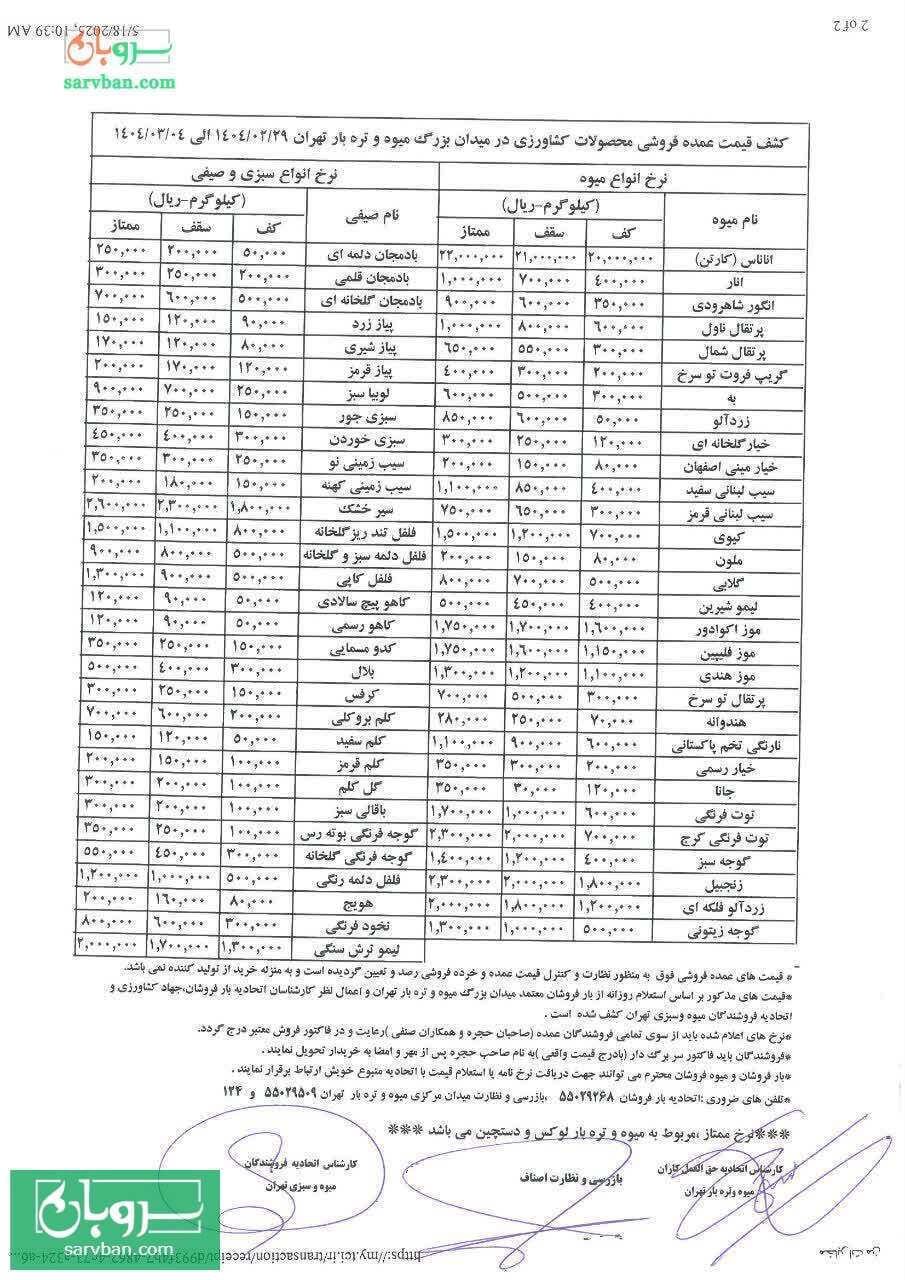 2 of 2
5/18/2025, 10:39 AM
سروبان
sarvban.com
کشف قیمت عمده فروشی محصولات کشاورزی در میدان بزرگ میوه و تره بار تهران ۱۴۰۴/۰۲/۲۹ الی ۱۴۰۴/۰۳/۰۴
نرخ انواع میوه نرخ انواع سبزی و صیفی
نام میوه (کیلوگرم-ریال) نام صیفی (کیلوگرم-ریال)
کف سقف ممتاز کف سقف ممتاز
اناناس (کارتن) ۲۰,۰۰۰,۰۰۰ ۲۱,۰۰۰,۰۰۰ ۲۲,۰۰۰,۰۰۰ بادمجان دلمه ای ۵۰,۰۰۰ ۲۰۰,۰۰۰ ۲۵۰,۰۰۰
انار ۴۰۰,۰۰۰ ۷۰۰,۰۰۰ ۱,۰۰۰,۰۰۰ بادمجان قلمی ۲۰۰,۰۰۰ ۲۵۰,۰۰۰ ۳۰۰,۰۰۰
انگور شاهرودی ۳۵۰,۰۰۰ ۶۰۰,۰۰۰ ۹۰۰,۰۰۰ بادمجان گلخانه ای ۵۰۰,۰۰۰ ۶۰۰,۰۰۰ ۷۰۰,۰۰۰
پرتقال ناول ۶۰۰,۰۰۰ ۸۰۰,۰۰۰ ۱,۰۰۰,۰۰۰ پیاز زرد ۹۰,۰۰۰ ۱۲۰,۰۰۰ ۱۵۰,۰۰۰
پرتقال شمال ۳۰۰,۰۰۰ ۵۵۰,۰۰۰ ۶۵۰,۰۰۰ پیاز شیری ۸۰,۰۰۰ ۱۲۰,۰۰۰ ۱۷۰,۰۰۰
گریپ فروت تو سرخ ۲۰۰,۰۰۰ ۳۰۰,۰۰۰ ۴۰۰,۰۰۰ پیاز قرمز ۱۲۰,۰۰۰ ۱۷۰,۰۰۰ ۲۰۰,۰۰۰
به ۳۰۰,۰۰۰ ۵۰۰,۰۰۰ ۶۰۰,۰۰۰ لوبیا سبز ۲۵۰,۰۰۰ ۷۰۰,۰۰۰ ۹۰۰,۰۰۰
زردآلو ۵۰,۰۰۰ ۶۰۰,۰۰۰ ۸۵۰,۰۰۰ سبزی جور ۱۵۰,۰۰۰ ۲۵۰,۰۰۰ ۳۵۰,۰۰۰
خیارگلخانه ای ۱۲۰,۰۰۰ ۲۵۰,۰۰۰ ۳۰۰,۰۰۰ سبزی خوردن ۳۰۰,۰۰۰ ۴۰۰,۰۰۰ ۴۵۰,۰۰۰
خیار مینی اصفهان ۸۰,۰۰۰ ۱۵۰,۰۰۰ ۲۰۰,۰۰۰ سیب زمینی نو ۲۵۰,۰۰۰ ۳۰۰,۰۰۰ ۳۵۰,۰۰۰
سیب لبنانی سفید ۴۰۰,۰۰۰ ۸۵۰,۰۰۰ ۱,۱۰۰,۰۰۰ سیب زمینی کهنه ۱۵۰,۰۰۰ ۱۸۰,۰۰۰ ۲۰۰,۰۰۰
سیب لبنانی قرمز ۳۰۰,۰۰۰ ۶۵۰,۰۰۰ ۷۵۰,۰۰۰ سیر خشک ۱,۸۰۰,۰۰۰ ۲,۳۰۰,۰۰۰ ۲,۶۰۰,۰۰۰
کیوی ۷۰۰,۰۰۰ ۱,۲۰۰,۰۰۰ ۱,۵۰۰,۰۰۰ فلفل تند ریزگلخانه ۸۰۰,۰۰۰ ۱,۱۰۰,۰۰۰ ۱,۵۰۰,۰۰۰
ملون ۸۰,۰۰۰ ۱۵۰,۰۰۰ ۲۰۰,۰۰۰ فلفل دلمه سبز و گلخانه ۵۰۰,۰۰۰ ۸۰۰,۰۰۰ ۹۰۰,۰۰۰
گلابی ۵۰۰,۰۰۰ ۷۰۰,۰۰۰ ۸۰۰,۰۰۰ فلفل کاپی ۵۰۰,۰۰۰ ۹۰۰,۰۰۰ ۱,۳۰۰,۰۰۰
لیمو شیرین ۴۰۰,۰۰۰ ۴۵۰,۰۰۰ ۵۰۰,۰۰۰ کاهو پیچ سالادی ۵۰,۰۰۰ ۹۰,۰۰۰ ۱۲۰,۰۰۰
موز اکوادور ۱,۶۰۰,۰۰۰ ۱,۷۰۰,۰۰۰ ۱,۷۵۰,۰۰۰ کاهو رسمی ۵۰,۰۰۰ ۹۰,۰۰۰ ۱۲۰,۰۰۰
موز فلیپین ۱,۱۵۰,۰۰۰ ۱,۶۰۰,۰۰۰ ۱,۷۵۰,۰۰۰ کدو مسمایی ۱۵۰,۰۰۰ ۲۵۰,۰۰۰ ۳۵۰,۰۰۰
موز هندی ۱,۱۰۰,۰۰۰ ۱,۲۰۰,۰۰۰ ۱,۳۰۰,۰۰۰ بلال ۳۰۰,۰۰۰ ۴۰۰,۰۰۰ ۵۰۰,۰۰۰
پرتقال تو سرخ ۳۰۰,۰۰۰ ۵۰۰,۰۰۰ ۷۰۰,۰۰۰ کرفس ۱۵۰,۰۰۰ ۲۵۰,۰۰۰ ۳۰۰,۰۰۰
هندوانه ۷۰,۰۰۰ ۲۵۰,۰۰۰ ۲۸۰,۰۰۰ کلم بروکلی ۲۰۰,۰۰۰ ۶۰۰,۰۰۰ ۷۰۰,۰۰۰
نارنگی تخم پاکستانی ۶۰۰,۰۰۰ ۹۰۰,۰۰۰ ۱,۱۰۰,۰۰۰ کلم سفید ۵۰,۰۰۰ ۱۲۰,۰۰۰ ۱۵۰,۰۰۰
خیار رسمی ۲۰۰,۰۰۰ ۳۰۰,۰۰۰ ۳۵۰,۰۰۰ کلم قرمز ۱۰۰,۰۰۰ ۱۵۰,۰۰۰ ۲۰۰,۰۰۰
جانا ۱۲۰,۰۰۰ ۳۰,۰۰۰ ۳۵۰,۰۰۰ گل کلم ۱۰۰,۰۰۰ ۲۰۰,۰۰۰ ۳۰۰,۰۰۰
توت فرنگی ۶۰۰,۰۰۰ ۱,۰۰۰,۰۰۰ ۱,۷۰۰,۰۰۰ باقالی سبز ۱۰۰,۰۰۰ ۲۰۰,۰۰۰ ۳۰۰,۰۰۰
توت فرنگی کرج ۷۰۰,۰۰۰ ۲,۰۰۰,۰۰۰ ۲,۳۰۰,۰۰۰ گوجه فرنگی بوته رس ۱۰۰,۰۰۰ ۲۵۰,۰۰۰ ۳۵۰,۰۰۰
گوجه سبز ۴۰۰,۰۰۰ ۱,۲۰۰,۰۰۰ ۱,۴۰۰,۰۰۰ گوجه فرنگی گلخانه ۳۰۰,۰۰۰ ۴۵۰,۰۰۰ ۵۵۰,۰۰۰
زنجبیل ۱,۸۰۰,۰۰۰ ۲,۰۰۰,۰۰۰ ۲,۳۰۰,۰۰۰ فلفل دلمه رنگی ۵۰۰,۰۰۰ ۱,۰۰۰,۰۰۰ ۱,۲۰۰,۰۰۰
زردآلو فلکه ای ۱,۲۰۰,۰۰۰ ۱,۸۰۰,۰۰۰ ۲,۰۰۰,۰۰۰ هویج ۸۰,۰۰۰ ۱۶۰,۰۰۰ ۲۰۰,۰۰۰
گوجه زیتونی ۵۰۰,۰۰۰ ۱,۰۰۰,۰۰۰ ۱,۳۰۰,۰۰۰ نخود فرنگی ۳۰۰,۰۰۰ ۶۰۰,۰۰۰ ۸۰۰,۰۰۰
لیمو ترش سنگی ۱,۳۰۰,۰۰۰ ۱,۷۰۰,۰۰۰ ۲,۰۰۰,۰۰۰
* قیمت های عمده فروشی فوق به منظور نظارت و کنترل قیمت عمده و خرده فروشی رصد و تعیین گردیده است و به منزله خرید از تولید کننده نمی باشد.
*قیمت های مذکور بر اساس استعلام روزانه از بار فروشان معتمد میدان بزرگ میوه و تره بار تهران و اعمال نظر کارشناسان اتحادیه بار فروشان،جهاد کشاورزی و
اتحادیه فروشندگان میوه وسبزی تهران کشف شده است .
*نرخ های اعلام شده باید از سوی تمامی فروشندگان عمده (صاحبان حجره و همکاران صنفی )رعایت و در فاکتور فروش معتبر درج گردد.
*فروشندگان باید فاکتور سر برگ دار (بادرج قیمت واقعی )به نام صاحب حجره پس از مهر و امضا به خریدار تحویل نمایند .
*بار فروشان و میوه فروشان محترم می توانند جهت دریافت نرخ نامه یا استعلام قیمت با اتحادیه متبوع خویش ارتباط برقرار نمایند.
*تلفن های ضروری :اتحادیه بار فروشان ۵۵۰۲۹۲۶۸ ،بازرسی و نظارت میدان مرکزی میوه و تره بار تهران ۵۵۰۲۹۵۰۹ و ۱۲۴
***نرخ ممتاز ،مربوط به میوه و تره بار لوکس و دستچین می باشد ***
کارشناس اتحادیه حق العمل کاران
میوه وتره بار تهران
بازرسی و نظارت اصناف
کارشناس اتحادیه فروشندگان
میوه و سبزی تهران
سروبان
sarvban.com
مخابرات من